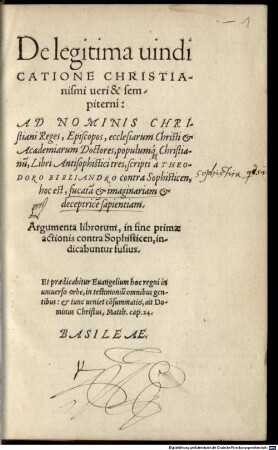 1
De legitima uindi
CATIONE CHRISTIA-
nismi ueri & sem-
piterni:
AD NOMINIS CHRI
stiani Reges, Episcopos, ecclesiarum Christi &
Academiarum Doctores, populumq́ Christia-
nũ, Libri Antisophistici tres, scripti à THEO
DORO BIBLIANDRO contra Sophisticen,
hoc est, fucatã & imaginariam &
deceptricẽ sapientiam.
sophistica
Argumenta librorum, in fine primæ
actionis contra Sophisticen, in-
dicabuntur fusius.
Et prædicabitur Euangelium hoc regni in
uniuerso orbe, in testimoniũ omnibus gen
tibus: & tunc ueniet cõsummatio, ait Do-
minus Christus, Matth. cap. 24.
BASILEAE.